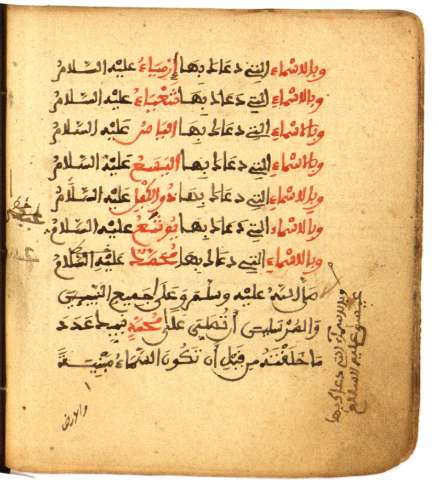 وبالاسماء التي دعاك بها أرمياء عليه السلام
وبالاسماء التي دعاك بها شعياء عليه السلام
وبالاسماء التي دعاك بها الياس عليه السلام
وبالاسماء التي دعاك بها اليسع عليه السلام
وبالاسماء التي دعاك بها ذو الكفل عليه السلام
وبالاسماء التي دعاك بها يوشع عليه السلام
وبالاسماء التي دعاك بها محمد عليه السلام
صلى الله عليه وسلم وعلى جميع النبيين
والمرسلين أن تصلي على محمد نبيك عدد
ما خلقته من قبل أن تكون السماء مبنية
والارض
وبالاسماء التي دعاك بها
عيسى عليه السلام